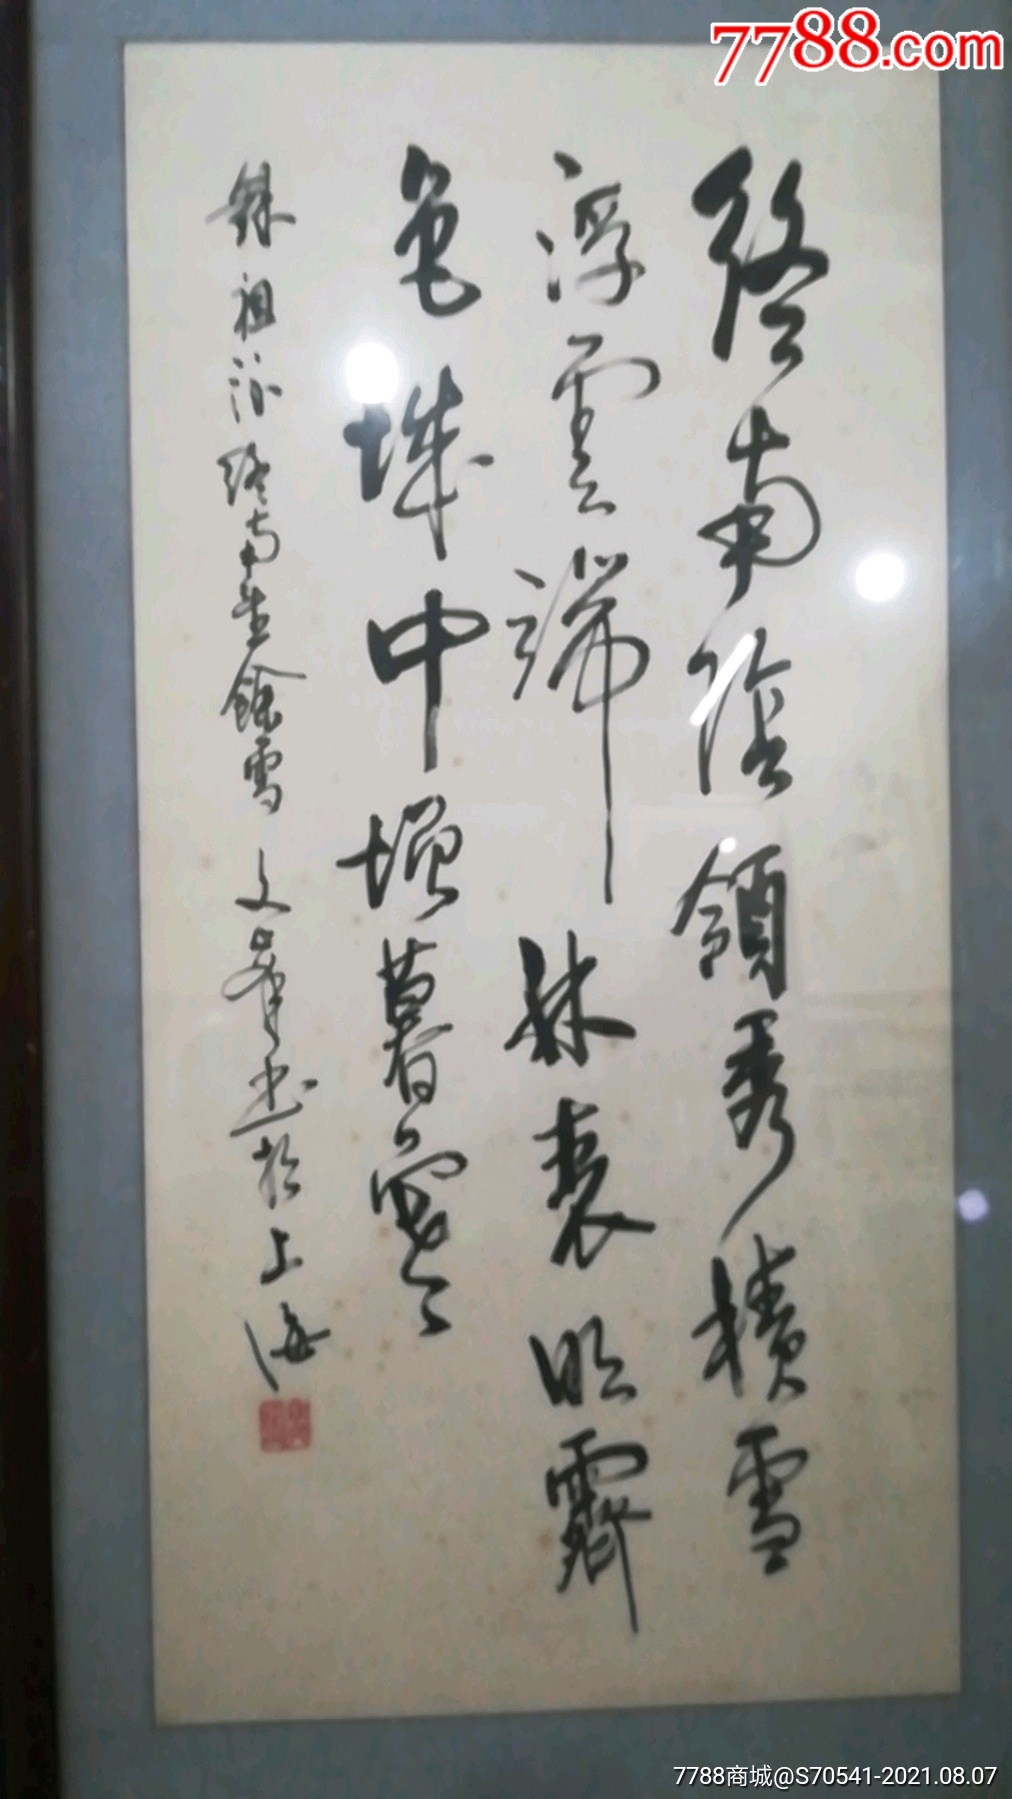 7788.com
終南陰領秀積雪
浮雲端林表明霽
色城中增暮寒
錄祖詠終南望餘雪 文書於上海
7788商城@S70541-2021.08.07